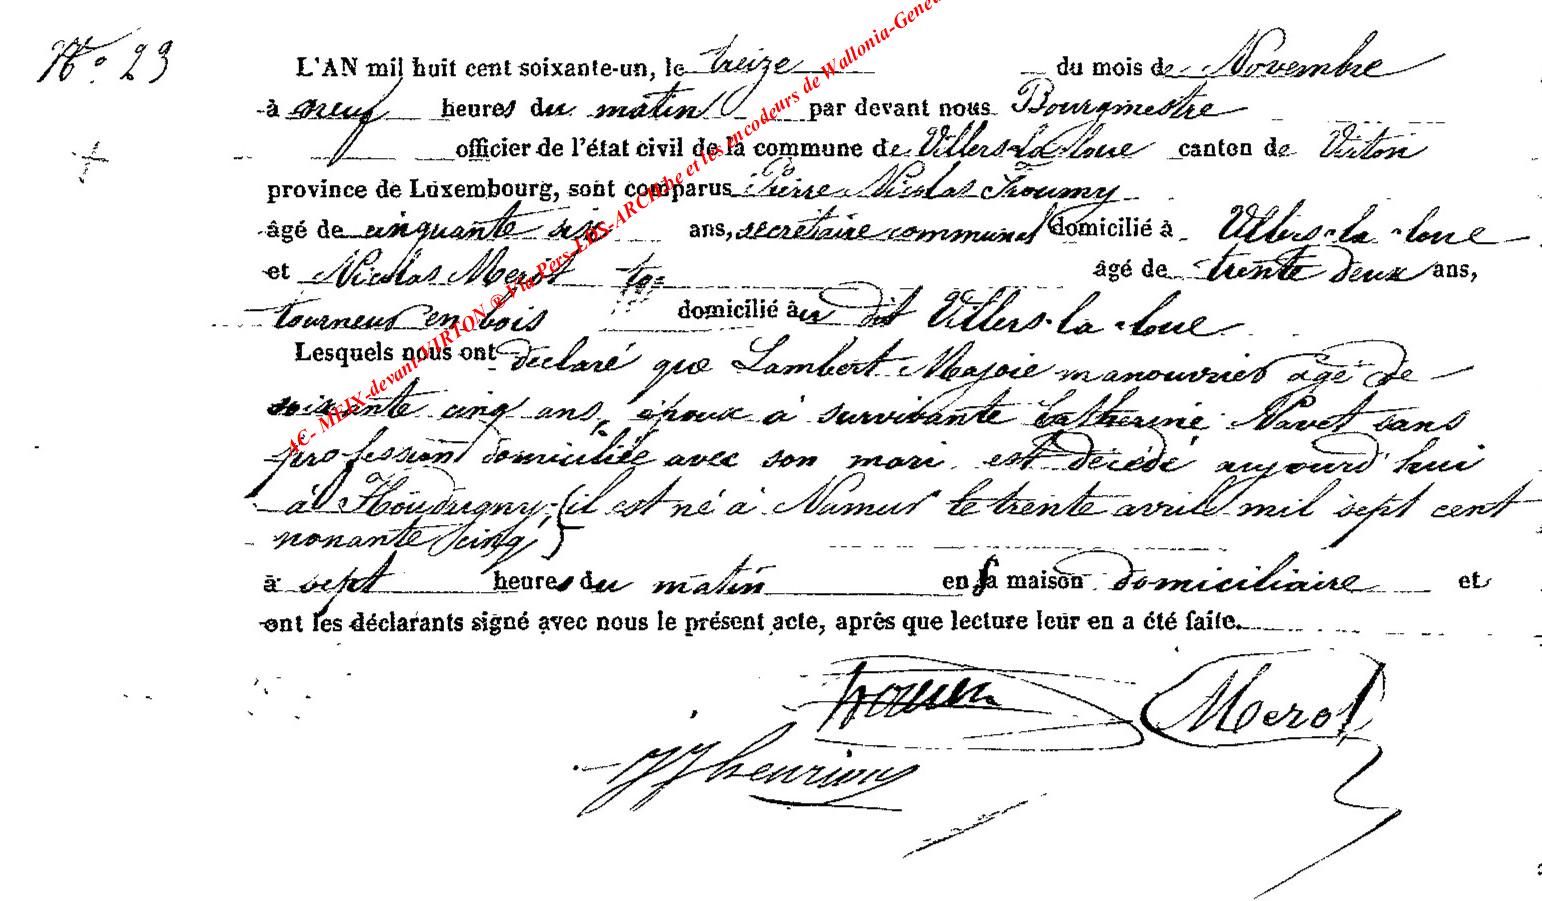 No. 23
L'AN mil huit cent soixante-un, le treize du mois de Novembre
à neuf heures du matin par devant nous Bourgmestre
officier de l'état civil de la commune de Villers-la-loue canton de Virton
province de Luxembourg, sont comparus Pierre Nicolas Froumy
âgé de cinquante six ans, secrétaire communal domicilié à Villers-la-loue
et Nicolas Merot âgé de trente deux ans,
tourneur en bois domicilié au dit Villers-la-loue
Lesquels nous ont déclaré que Lambert Majoie manouvrier âgé de
soixante cinq ans, époux à survivante Catherine Navet sans
profession domiciliée avec son mari est décédé aujourd'hui
à Houdrigny, (il est né à Namur le trente avril mil sept cent
nonante cinq)
à sept heures du matin en sa maison domiciliaire et
ont les déclarants signé avec nous le présent acte, après que lecture leur en a été faite.
Merot
JJ henrion
AC- MEIX-devant-VIRTON ® Via Pers-LDS-ARCHbe et les encodeurs de Wallonia-Gene